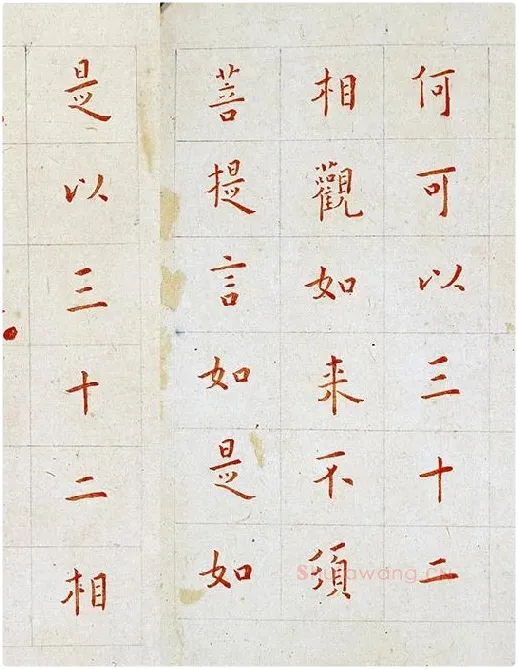 何可以三十二
相觀如来不須
菩提言如是如
是以三十二相